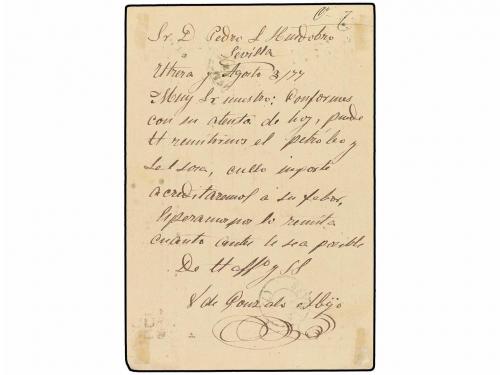 Sr. D. Pedro L. Huidobro
Sevilla
Utrera y Agosto 3/77
Muy Sr. nuestro: Conformes
con su atenta de hoy, puede
U remitirnos el petróleo y
cullo importe
acreditaremos á su fabor,
Esperamos nos lo remita
cuanto antes le sea posible
De U affº y SS
V. de Gonzalo é Hijo